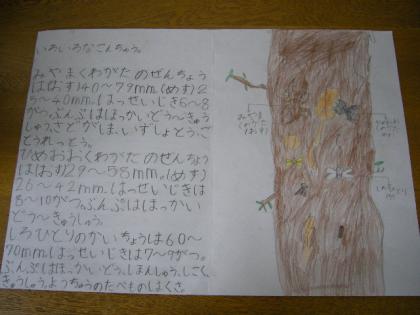 いろいろなこんちゅう。
みやまくわがたのぜんちょう
はおす)40~79mm.(めす)2
5~40mm.はっせいじき6~8
がつ.ぶんぷはほっかいどう~きゅう
しゅう.さどがしま.いずしょとう.
とうれっとう。
ひめおおくわがたのぜんちょ
はおす)29~58mm.(めす)
26~42mm.はっせいじきは
8~10がつ.ぶんぷはほっかい
どう~きゅうしゅう。
しろひとりのかいちょうは60~
70mm.はっせいじきは7~9がつ。
ぶんぷはほっかいどう.ほんしゅう.しこく.
きゅうしゅう.ようちゅうのたべものはくさ。
みやま
くわがた
(おす)